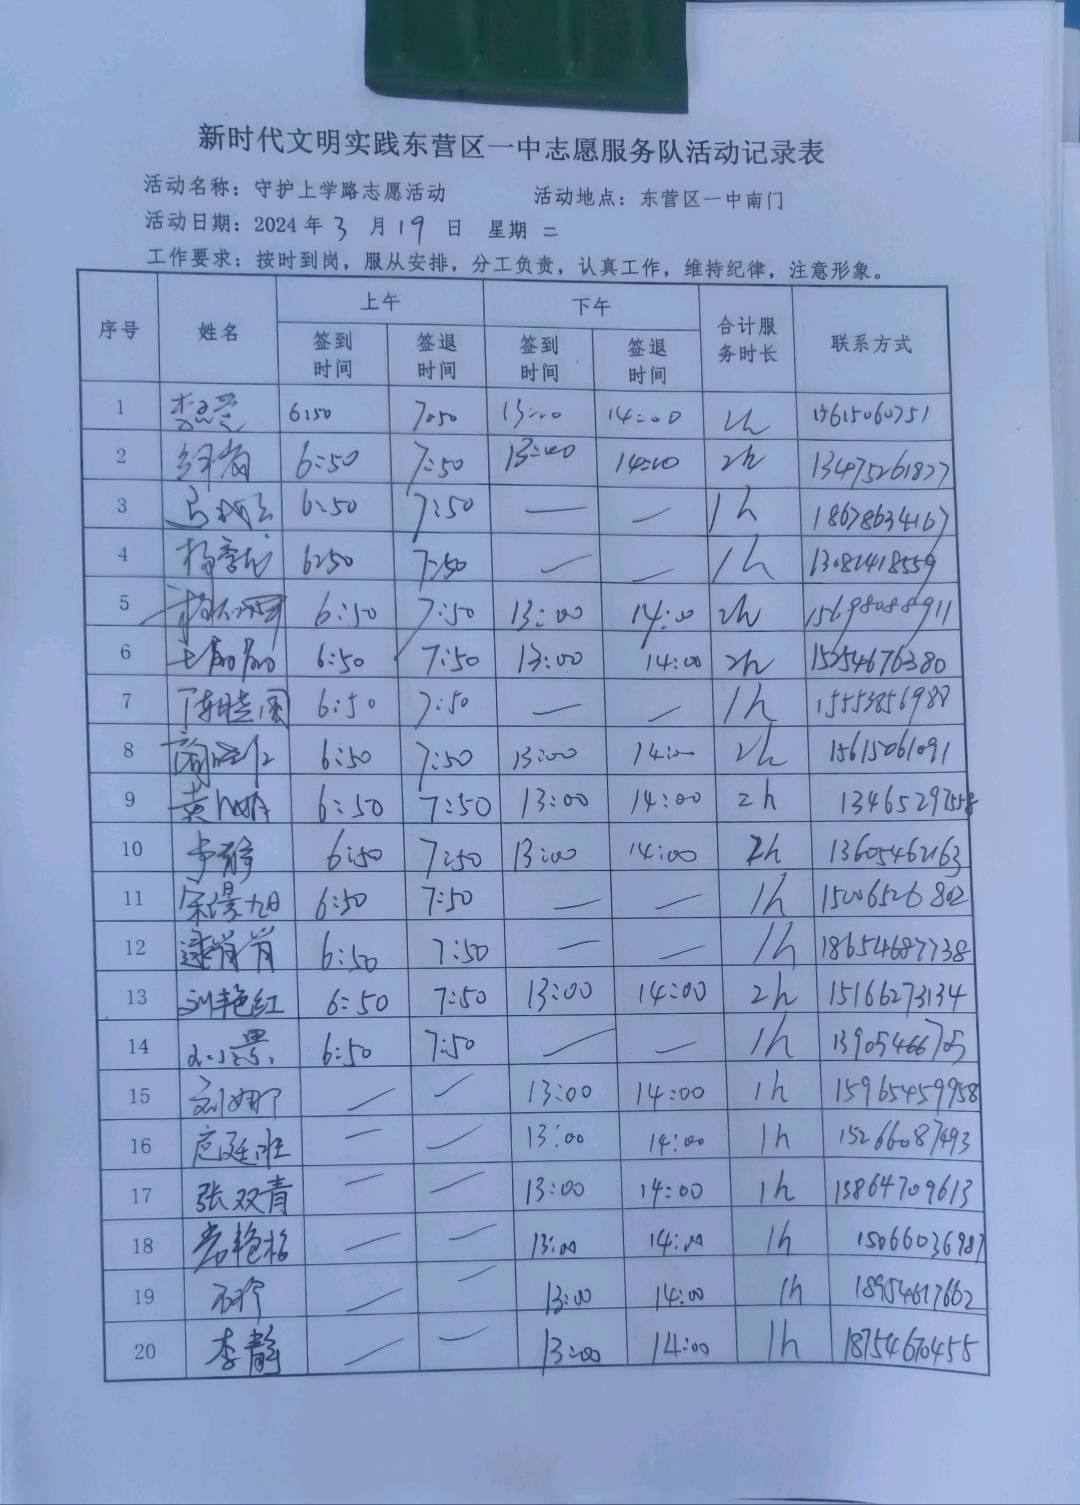 新时代文明实践东营区一中志愿服务队活动记录表
活动名称：守护上学路志愿活动 活动地点：东营区一中南门
活动日期：2024年3月19日 星期二
工作要求：按时到岗，服从安排，分工负责，认真工作，维持纪律，注意形象。
序号 姓名 上午 下午 合计服务时长 联系方式
签到时间 签退时间 签到时间 签退时间
1 6:50 7:50 13:00 14:00 2h
2 6:50 7:50 13:00 14:00 2h 13475261827
3 6:50 7:50 — — 1h 18678634167
4 6:50 7:50 — — 1h
5 6:50 7:50 13:00 14:00 2h 15698088911
6 6:50 7:50 13:00 14:00 2h 15254676380
7 6:50 7:50 — — 1h 15553856988
8 6:50 7:50 13:00 14:00 2h 15615061091
9 6:50 7:50 13:00 14:00 2h
10 李静 6:50 7:50 13:00 14:00 2h 13605462163
11 宋景旭 6:50 7:50 — — 1h 15006526802
12 逯肖肖 6:50 7:50 — — 1h 18654687738
13 刘艳红 6:50 7:50 13:00 14:00 2h 15166273134
14 6:50 7:50 — — 1h 13905466705
15 刘娜 — — 13:00 14:00 1h 15965459958
16 — — 13:00 14:00 1h 15266087493
17 张双青 — — 13:00 14:00 1h 13864709613
18 — — 13:00 14:00 1h 15066036987
19 — — 13:00 14:00 1h 18954617662
20 李静 — — 13:00 14:00 1h 18754670455